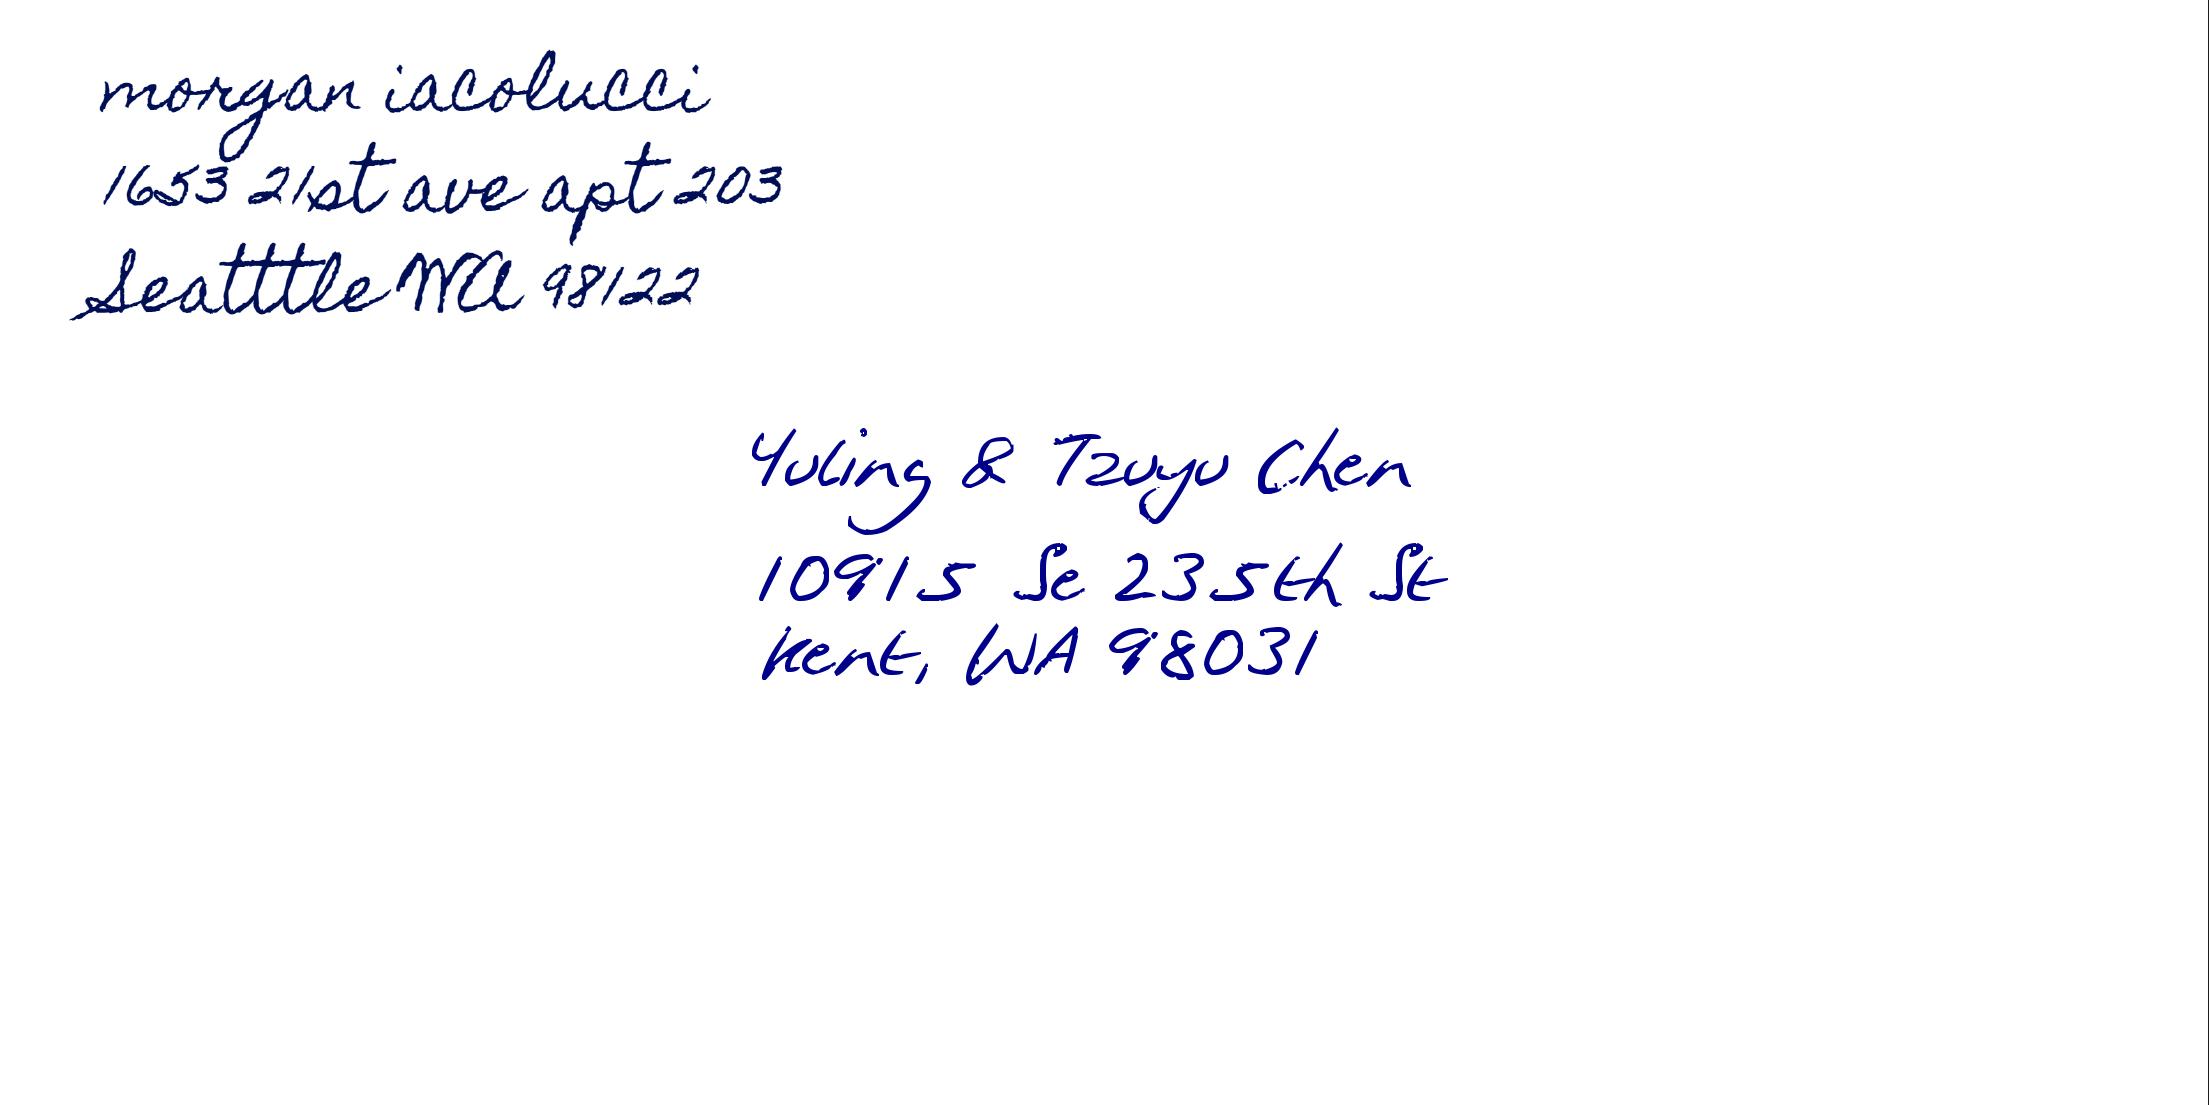 morgan iacolucci
1653 21st ave apt 203
Seatttle WA 98122
Yuling & Tzuyu Chen
10915 Se 235th St
Kent, WA 98031